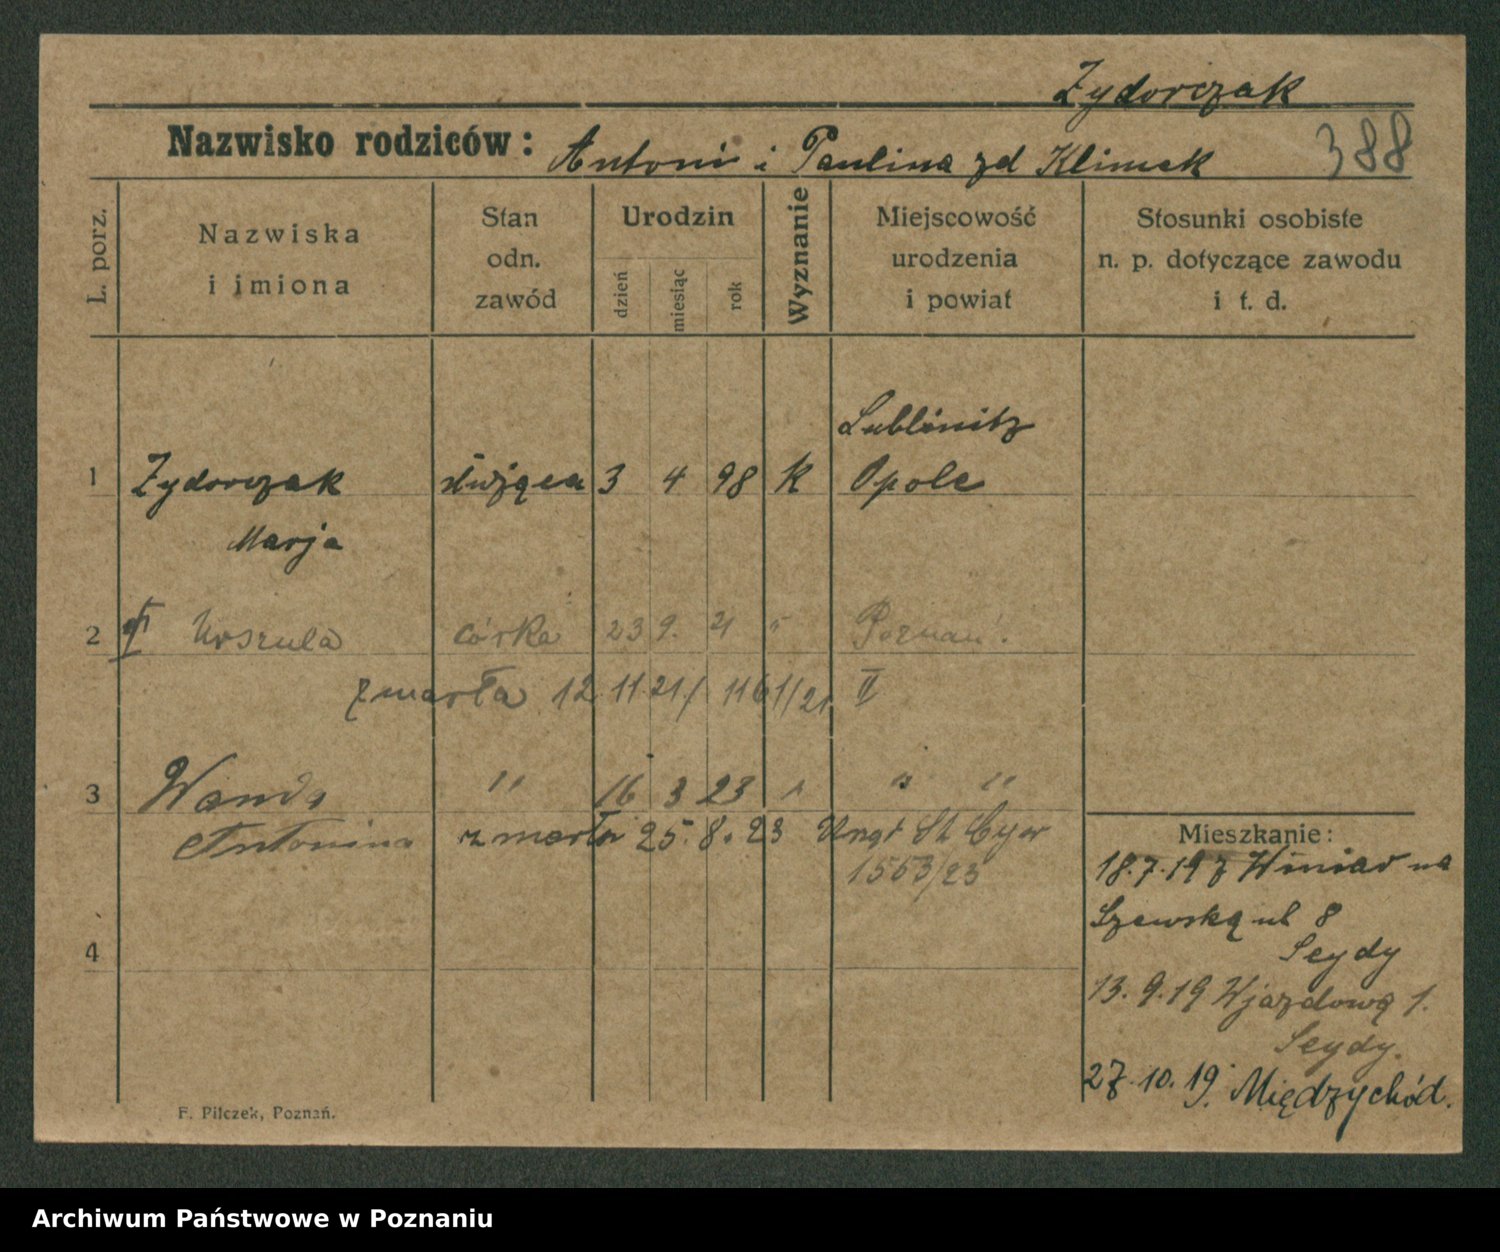 Zydorczak
Nazwisko rodziców: Antoni i Paulina zd Klimek 388
L. porz.
Nazwiska i imiona
Stan odn. zawód
Urodzin
dzień miesiąc rok
Wyznanie
Miejscowość urodzenia i powiat
Stosunki osobiste n. p. dotyczące zawodu i t. d.
Lublinitz
1 Zydorczak służąca 3 4 98 k Opole
Marja
2 Urszula córka 23 9. 21 " Poznań.
zmarła 12 11 21/ 1161/21 II
3 Wanda " 16 3 23 " " "
Antonina zmarła 25. 8. 23 St
1553/23
4
Mieszkanie:
18.7.19 z Winiar na
Szewską ul 8
Seydy
13. 9. 19 Wjazdową 1.
Seydy.
27. 10. 19. Międzychód.
F. Pilczek, Poznań.
Archiwum Państwowe w Poznaniu